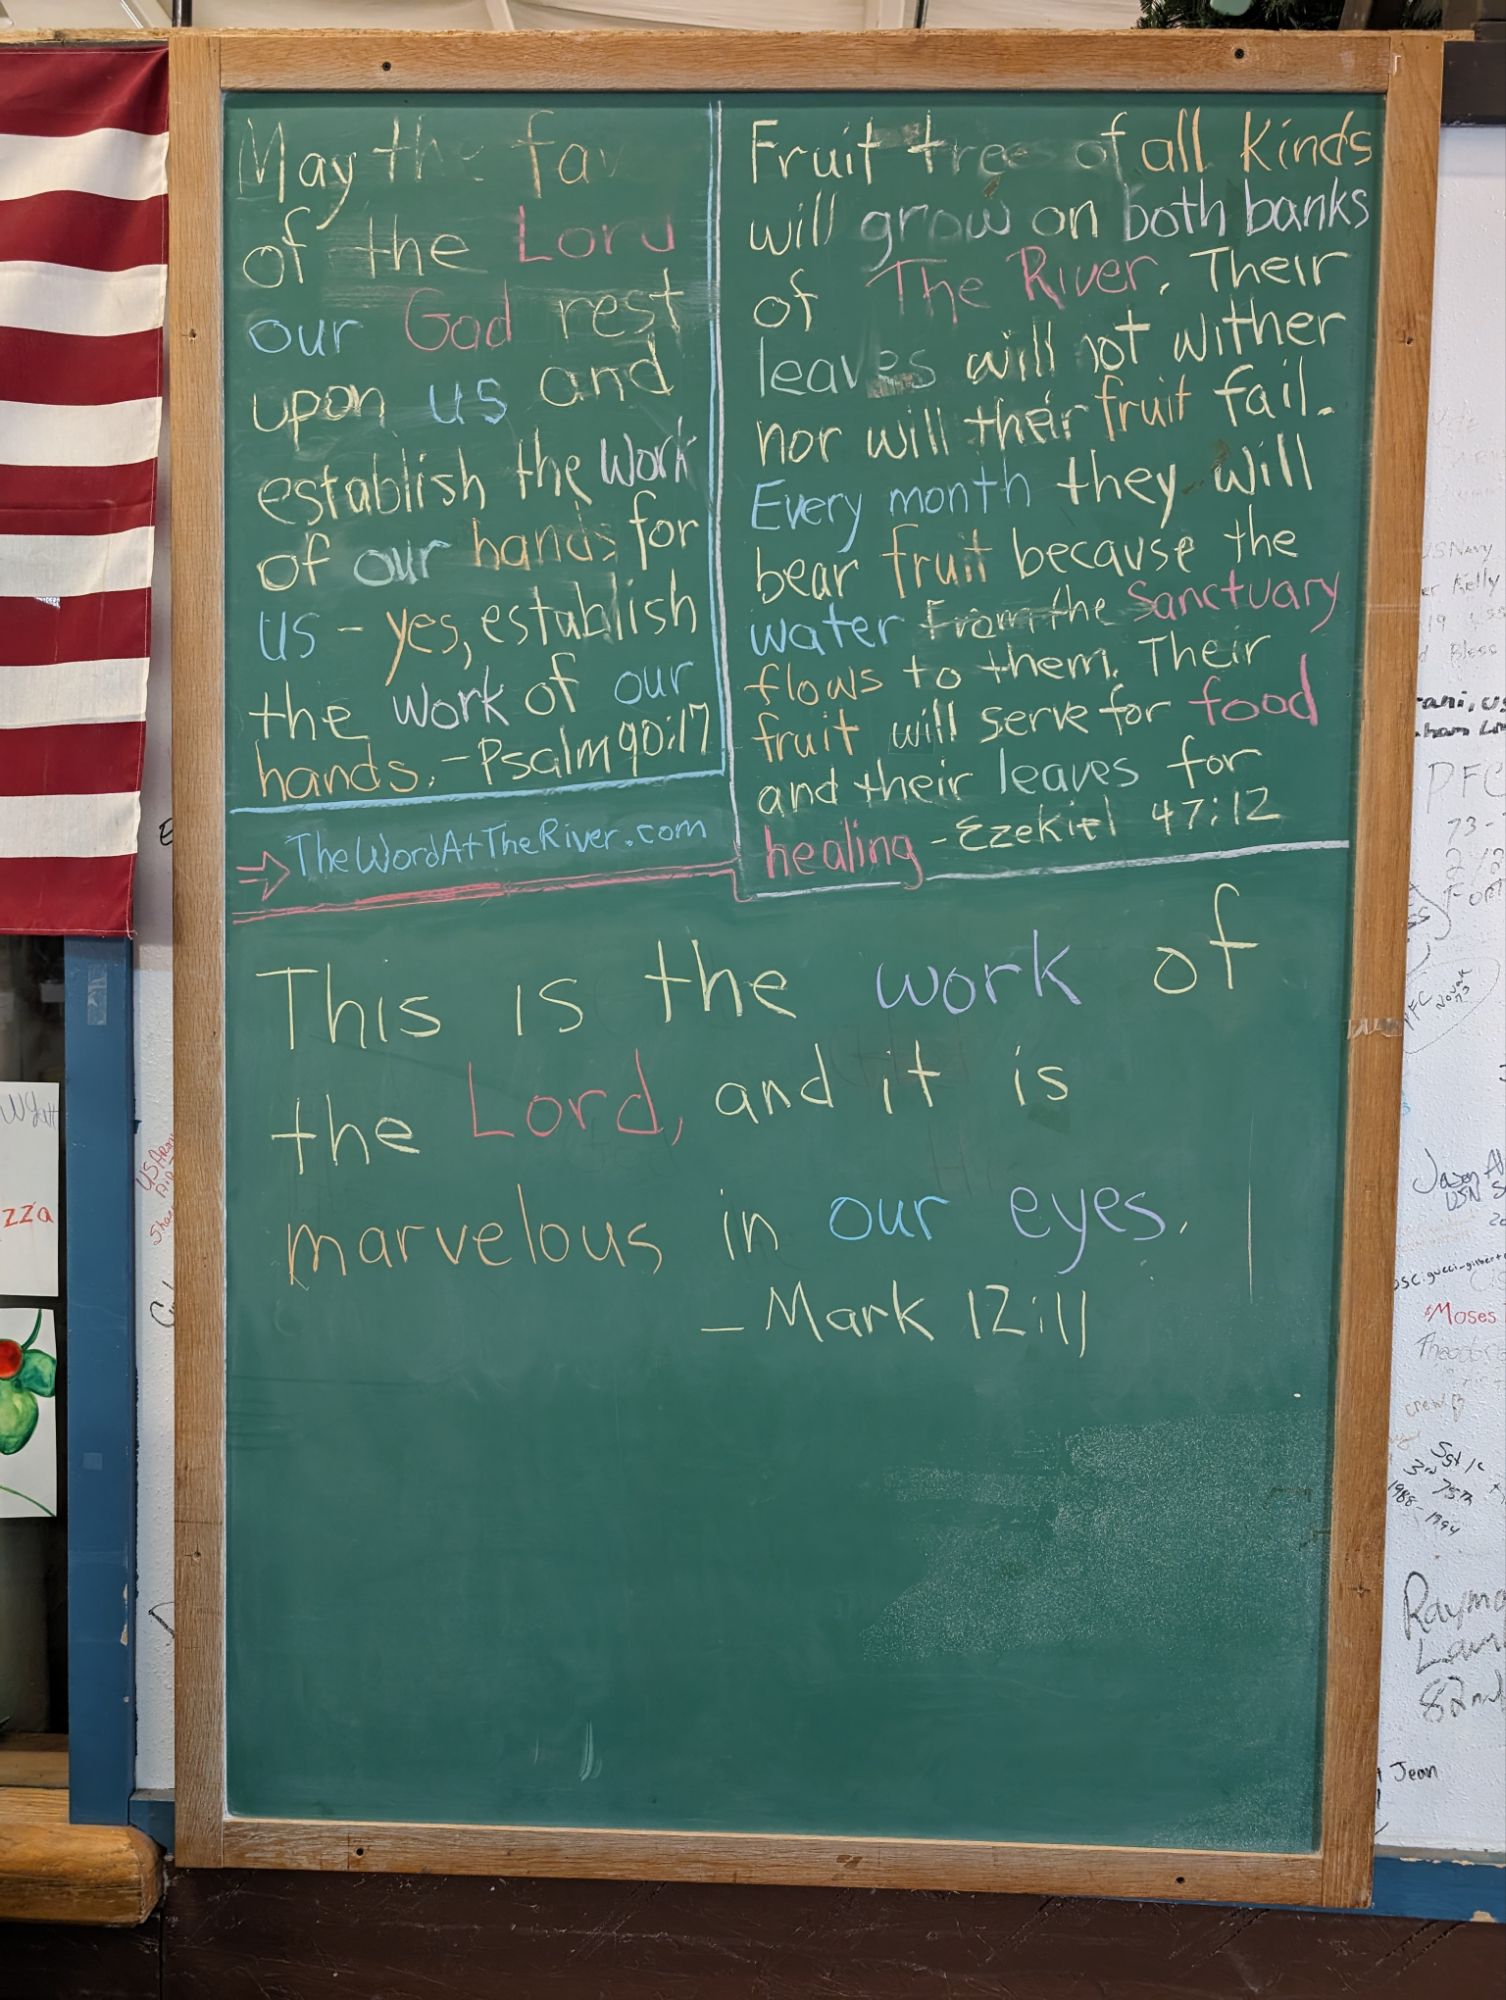 May the fav
of the Lord
our God rest
upon us and
establish the work
of our hands for
us - yes, establish
the work of our
hands. - Psalm 90:17
TheWordAtTheRiver.com
Fruit trees of all Kinds
will grow on both banks
of The River. Their
leaves will not wither
nor will their fruit fail.
Every month they will
bear fruit because the
water from the Sanctuary
flows to them. Their
fruit will serve for food
and their leaves for
healing - Ezekiel 47:12
This is the work of
the Lord, and it is
marvelous in our eyes.
- Mark 12:11
zza
US Navy
Kelly
Bless
PFC
73-
PFC
USN
Moses
crew
1988-1994
82nd
Jean